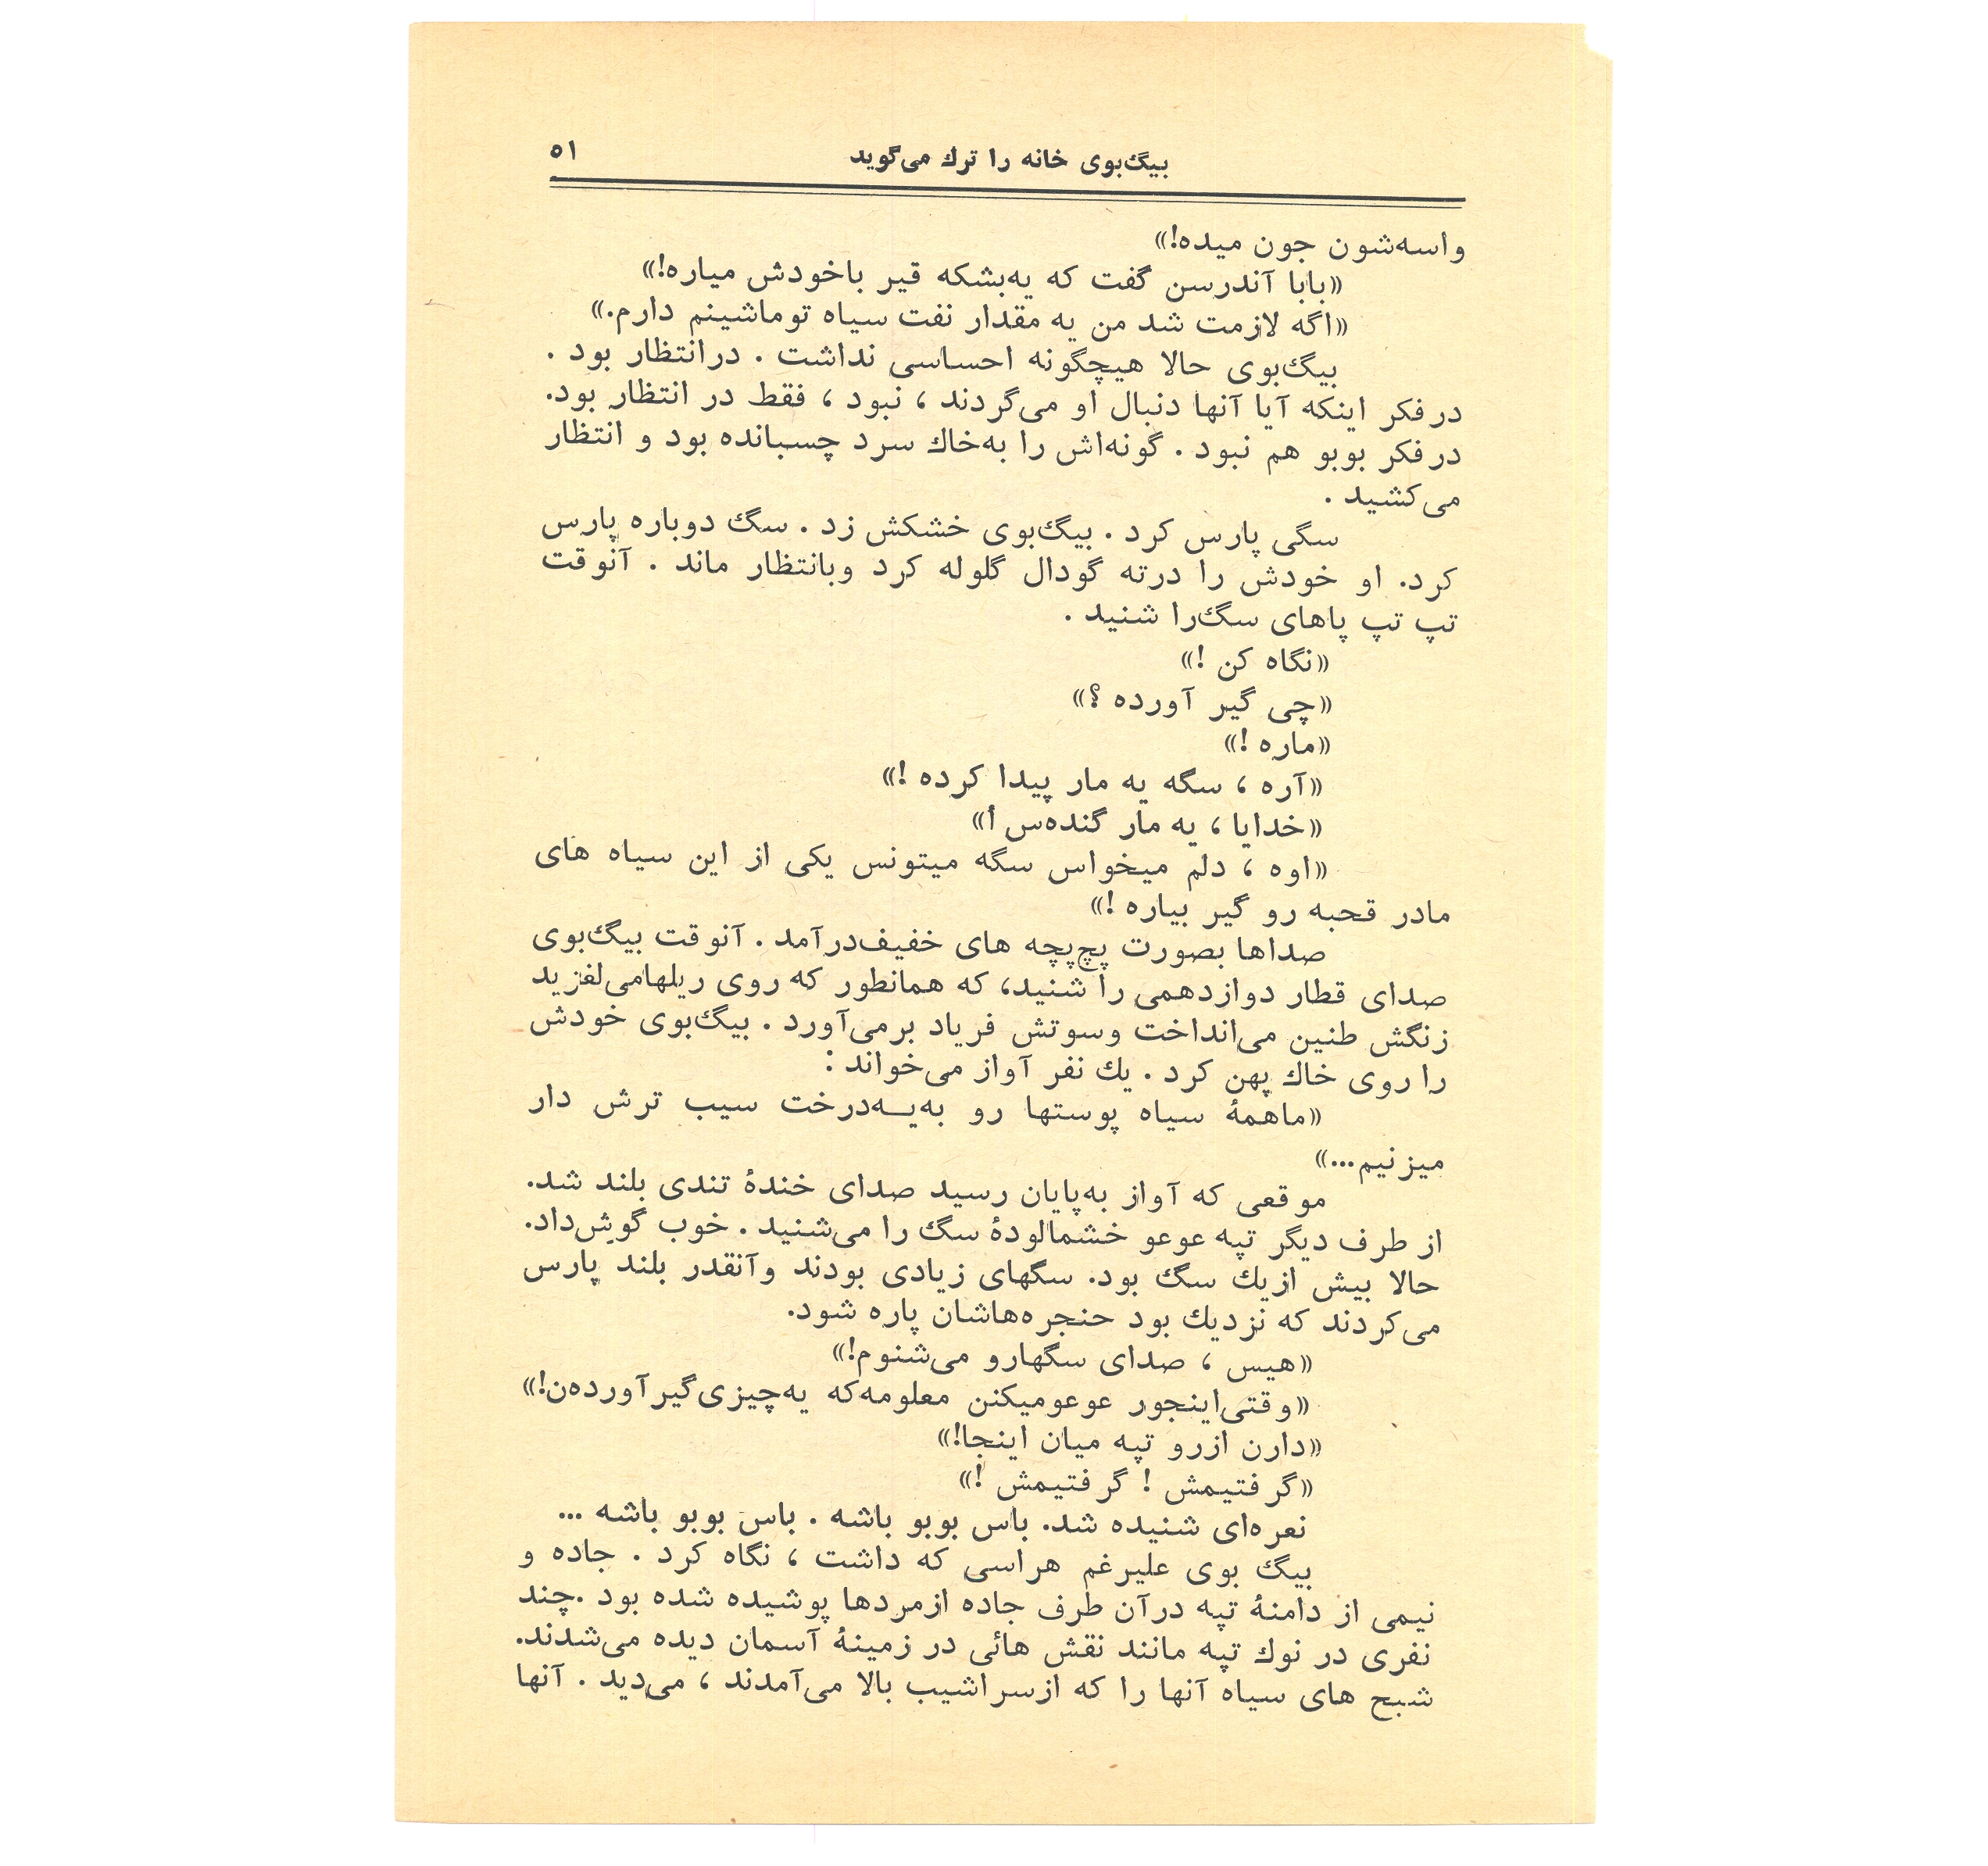 بیگ‌بوی خانه را ترك می‌گوید ۵۱
واسه‌شون جون میده!»
«بابا آندرسن گفت که یه‌بشکه قیر باخودش میاره!»
«اگه لازمت شد من یه مقدار نفت سیاه توماشینم دارم.»
بیگ‌بوی حالا هیچگونه احساسی نداشت . درانتظار بود .
درفکر اینکه آیا آنها دنبال او می‌گردند ، نبود ، فقط در انتظار بود.
درفکر بوبو هم نبود . گونه‌اش را به‌خاك سرد چسبانده بود و انتظار
می‌کشید .
سگی پارس کرد . بیگ‌بوی خشکش زد . سگ دوباره پارس
کرد. او خودش را درته گودال گلوله کرد وبانتظار ماند . آنوقت
تپ تپ پاهای سگ‌را شنید .
«نگاه کن !»
«چی گیر آورده ؟»
«ماره !»
«آره ، سگه یه مار پیدا کرده !»
«خدایا ، یه مار گنده‌س !»
«اوه ، دلم میخواس سگه میتونس یکی از این سیاه های
مادر قحبه رو گیر بیاره !»
صداها بصورت پچ‌پچه های خفیف‌درآمد . آنوقت بیگ‌بوی
صدای قطار دوازدهمی را شنید، که همانطور که روی ریلهامی‌لغزید
زنگش طنین می‌انداخت وسوتش فریاد برمی‌آورد . بیگ‌بوی خودش
را روی خاك پهن کرد . یك نفر آواز می‌خواند :
«ماهمهٔ سیاه پوستها رو به‌یـه‌درخت سیب ترش دار
میزنیم...»
موقعی که آواز به‌پایان رسید صدای خندهٔ تندی بلند شد.
از طرف دیگر تپه عوعو خشمالودهٔ سگ را می‌شنید . خوب گوش‌داد.
حالا بیش ازیك سگ بود. سگهای زیادی بودند وآنقدر بلند پارس
می‌کردند که نزدیك بود حنجره‌هاشان پاره شود.
«هیس ، صدای سگهارو می‌شنوم!»
«وقتی‌اینجور عوعومیکنن معلومه‌که یه‌چیزی‌گیرآورده‌ن!»
«دارن ازرو تپه میان اینجا!»
«گرفتیمش ! گرفتیمش !»
نعره‌ای شنیده شد. باس بوبو باشه . باس بوبو باشه ...
بیگ بوی علیرغم هراسی که داشت ، نگاه کرد . جاده و
نیمی از دامنهٔ تپه درآن طرف جاده ازمردها پوشیده شده بود .چند
نفری در نوك تپه مانند نقش هائی در زمینهٔ آسمان دیده می‌شدند.
شبح های سیاه آنها را که ازسراشیب بالا می‌آمدند ، می‌دید . آنها